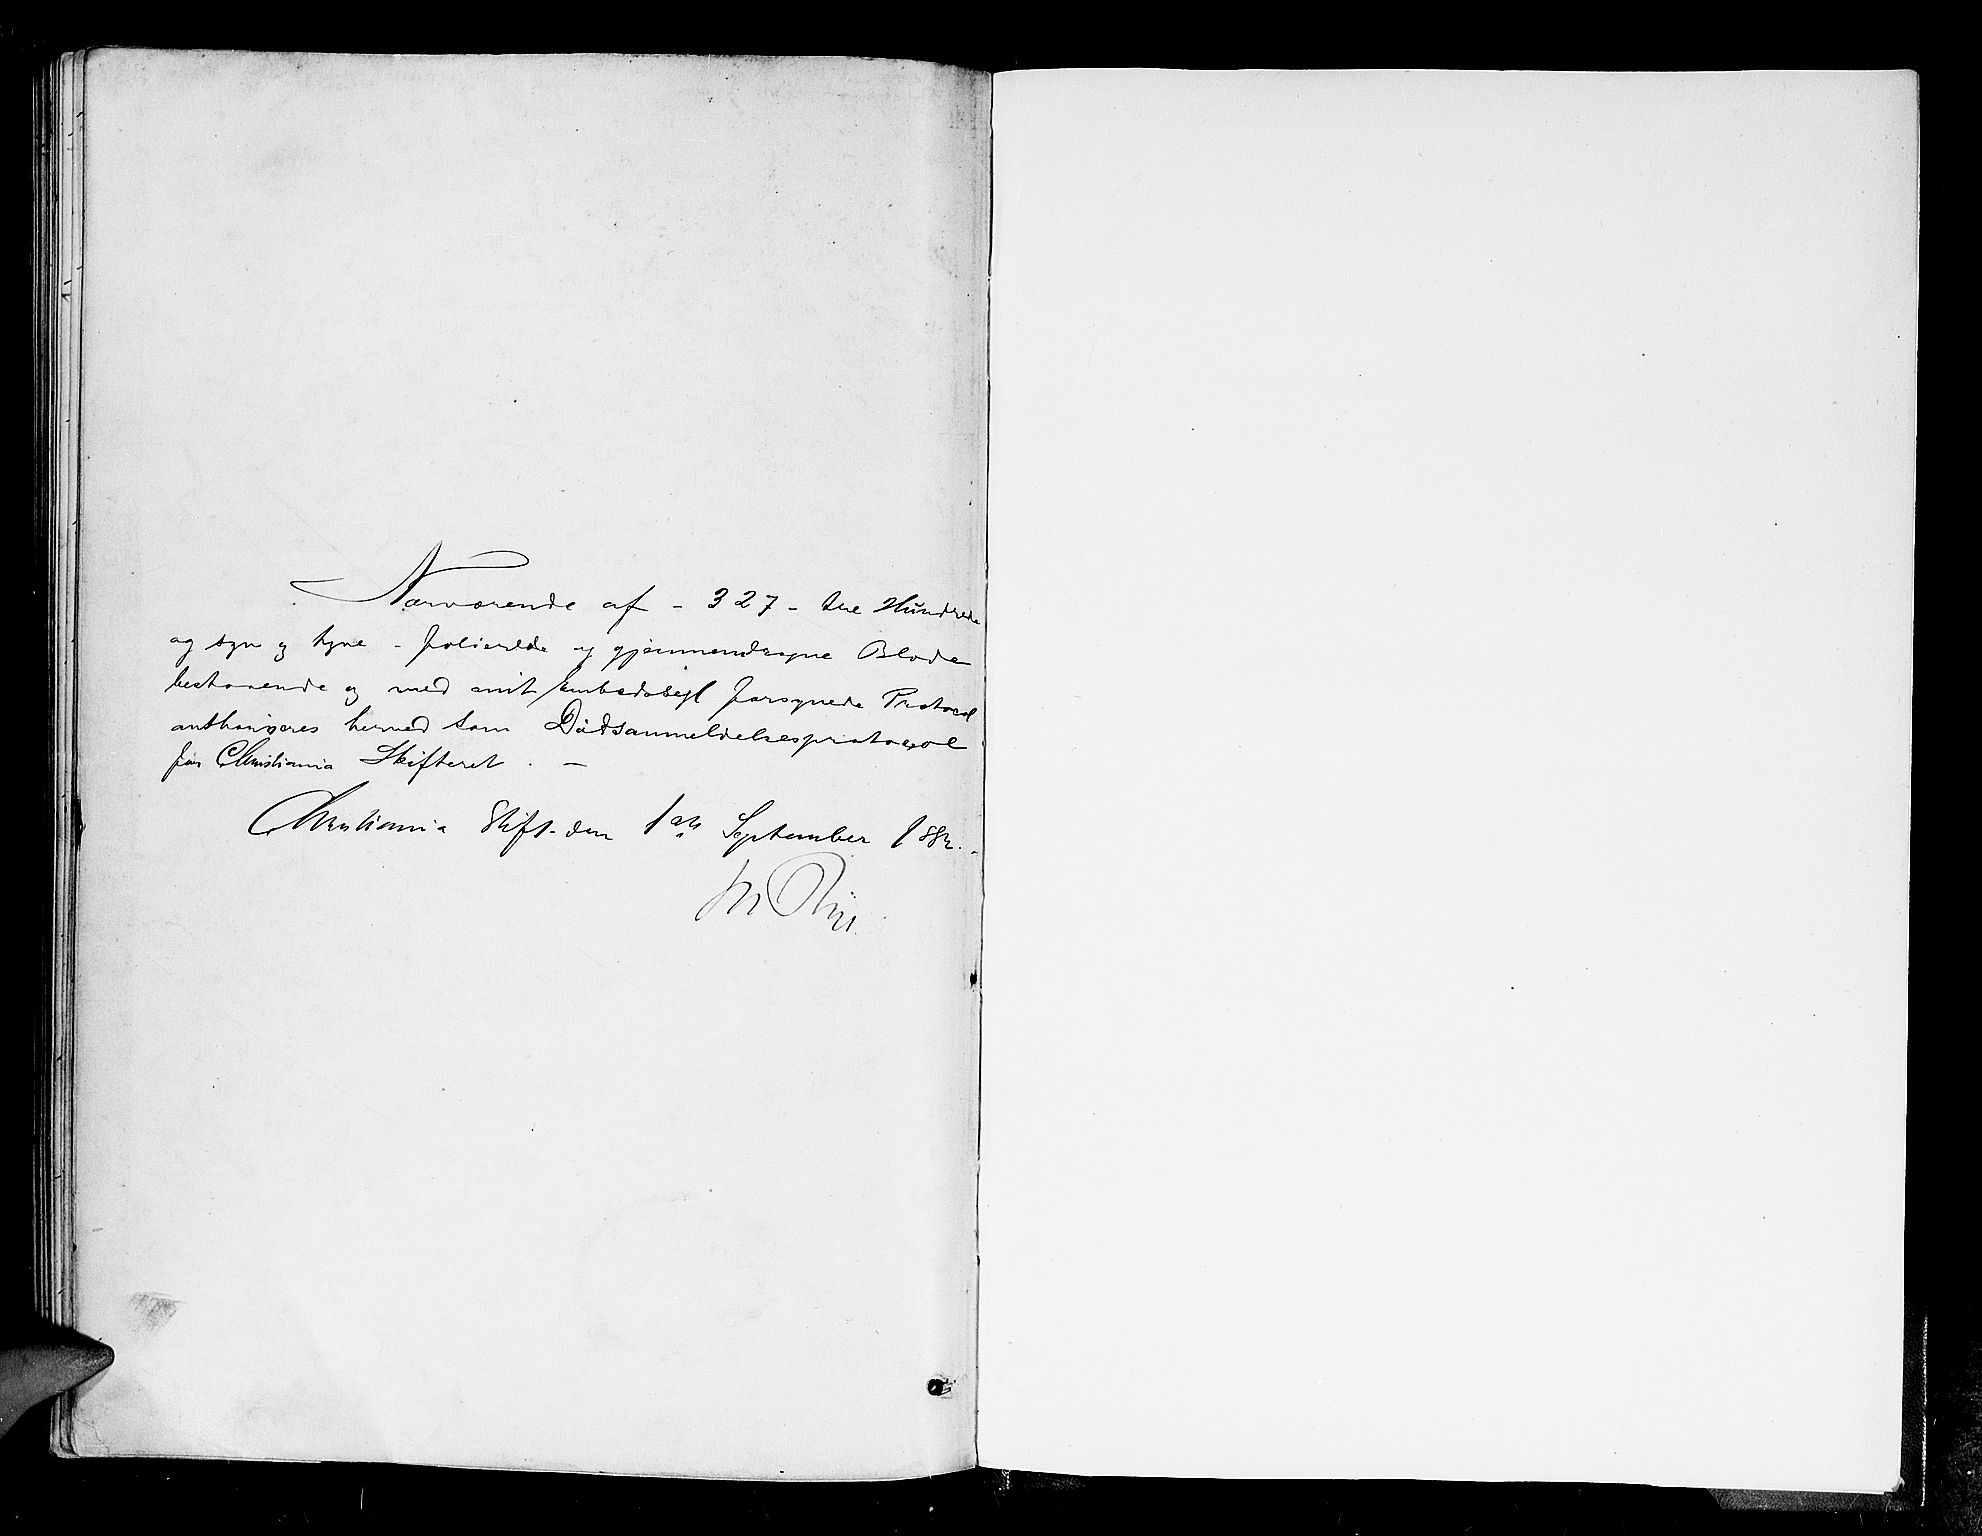 Nærværende af - 327 - tre Hundrede
og syv og tyve - folierede og gjennemdragne Blade
bestaaende og med mit Embedssegl forsynede Protocol
authoriseres herved som Dødsanmeldelsesprotocol
for Christiania Skifteret. -
Christiania Stift. den 1ste September 1882. -